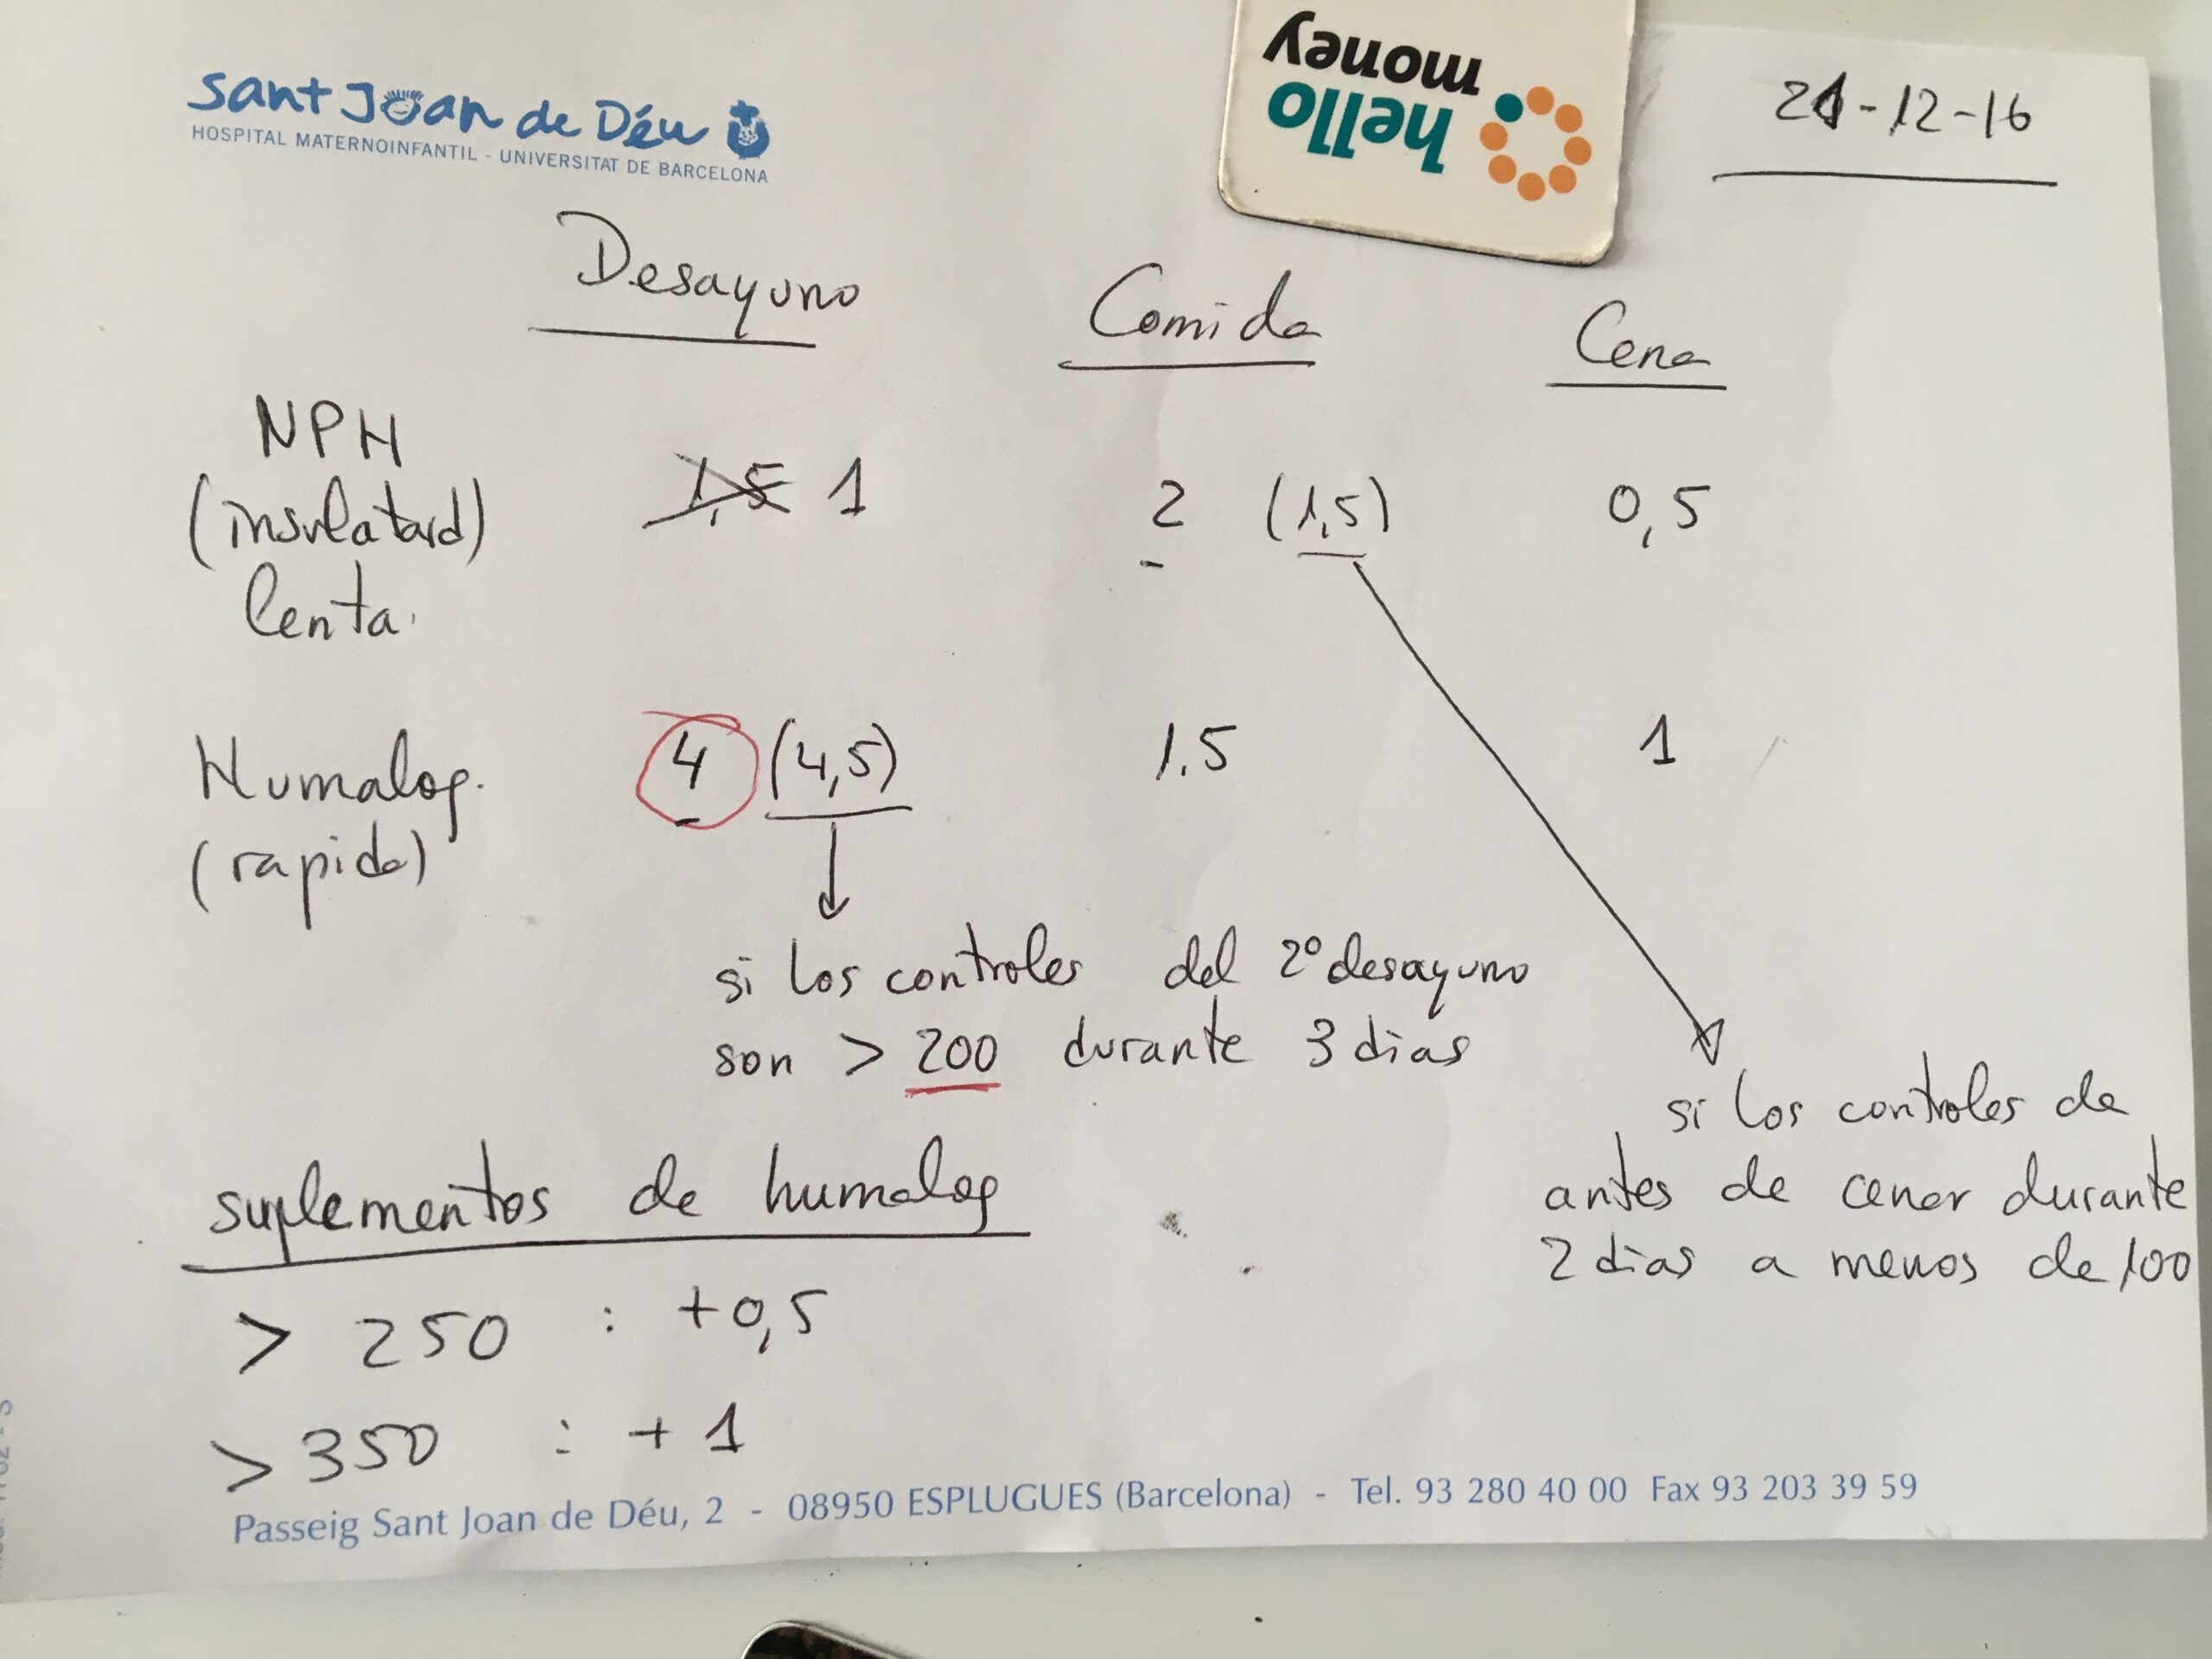 sant Joan de Déu
HOSPITAL MATERNOINFANTIL - UNIVERSITAT DE BARCELONA
hello
money
21-12-16
Desayuno Comida Cena
NPH
(insulatard) 1,5 1 2 (1,5) 0,5
lenta.
Humalog. 4 (4,5) 1.5 1
(rapida)
si los controles del 2º desayuno
son > 200 durante 3 dias
si los controles de
antes de cenar durante
2 dias a menos de 100
suplementos de humalog
> 250 : +0,5
> 350 : + 1
Passeig Sant Joan de Déu, 2 - 08950 ESPLUGUES (Barcelona) - Tel. 93 280 40 00 Fax 93 203 39 59